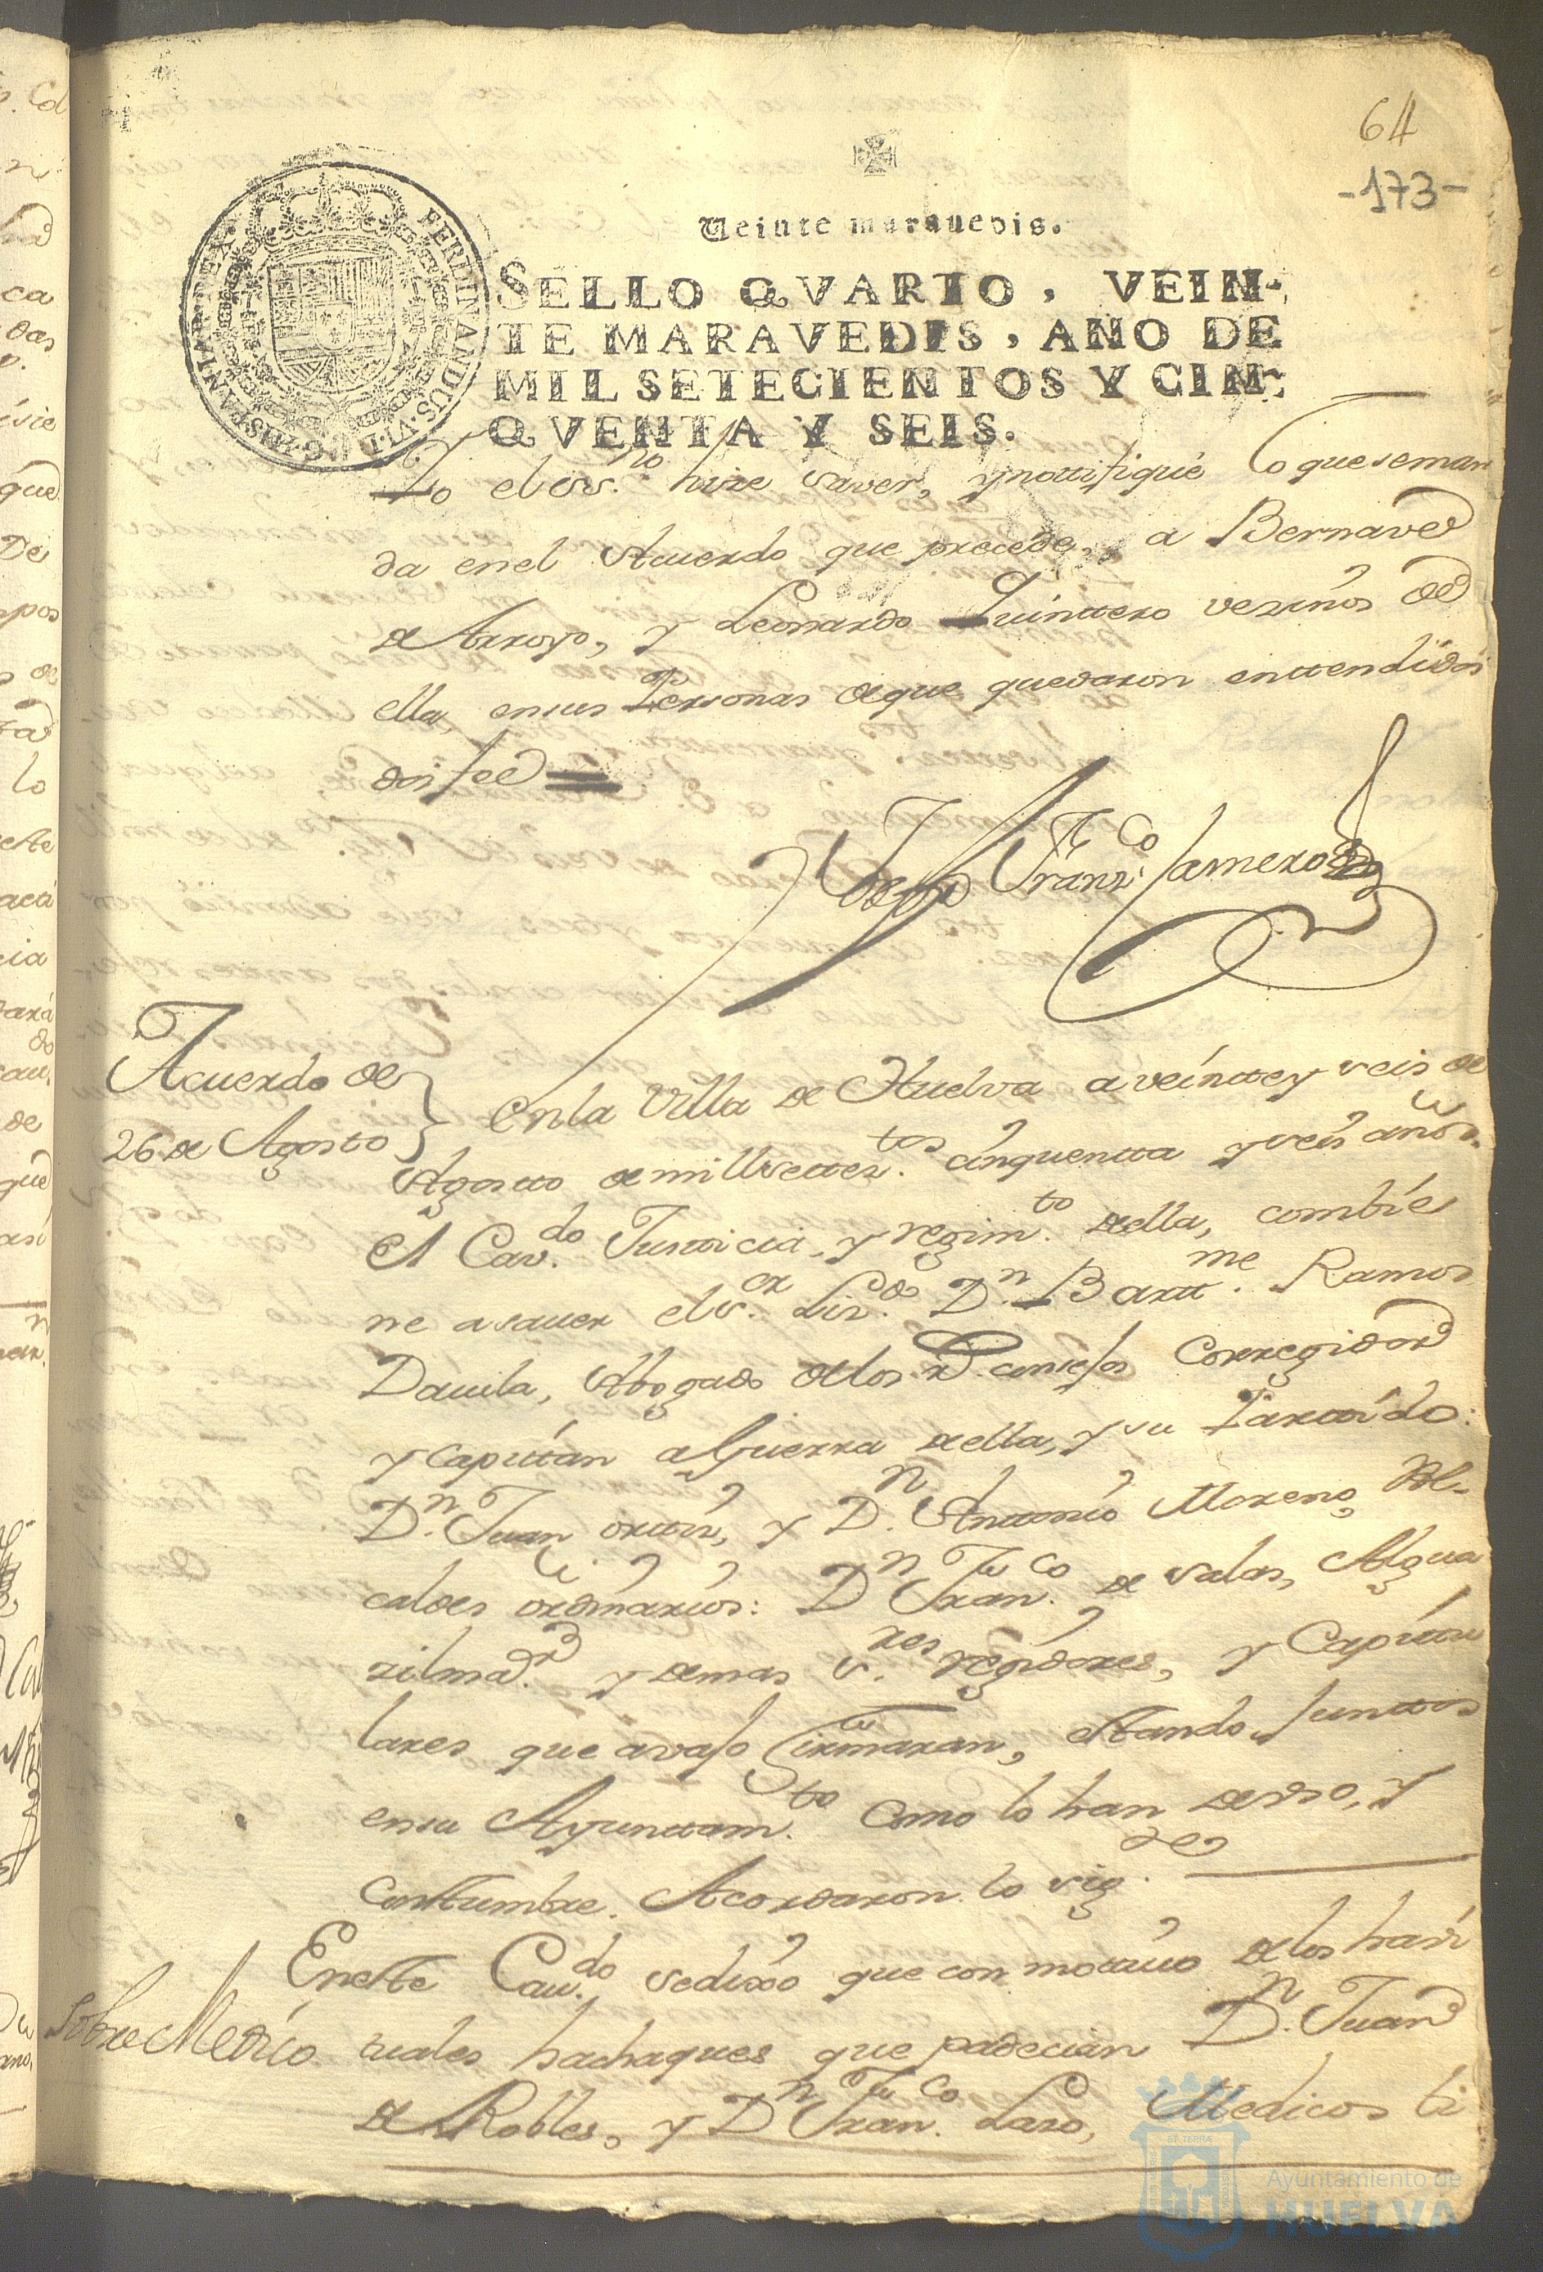 64
-173-
Veinte marauedis.
SELLO QVARTO, VEIN-
TE MARAVEDIS, AÑO DE
MIL SETECIENTOS Y CIN-
QVENTA Y SEIS.
FERDINANDUS.VI.D.G.HISPANIAR.REX.
Yo el ess.no hize saver, y nottifiqué lo que se man
da en el Acuerdo que precede, a Bernave
de Arroyo, y Leonardo Quinttero vezinos de
ella, en sus Personas de que quedaron enttendidos
doi fee
Franz.co Jamero
Acuerdo de
26 de Agosto
En la Villa de Huelva a veintte y seis de
Agosto de mill settez.tos cinquentta y seis años.
El Cav.do Justicia, y regim.to de ella, combie
ne a saver el s.or Liz.do D.n Bartt.me Ramos
Davila, Abogado de los R. consejos Corregidor
y Capitán a Guerra de ella, y su Parttido:
D.n Juan orttiz, y D.n Anttonio Moreno, Al-
caldes ordinarios: D.n Fran.co de Salas, Algua
zil ma.r y demas s.res regidores, y Capitu
lares que avajo firmaran, estando junttos
en su Ayunttam.to como lo han de uso, y
costumbre. Acordaron lo sig.te
En este Cav.do se dixo que con motivo de los havi
Sobre Medico
tuales hachaques que padecian D.n Juan
de Robles, y D.n Fran.co Lazo, Medicos ti
Ayuntamiento de
HUELVA